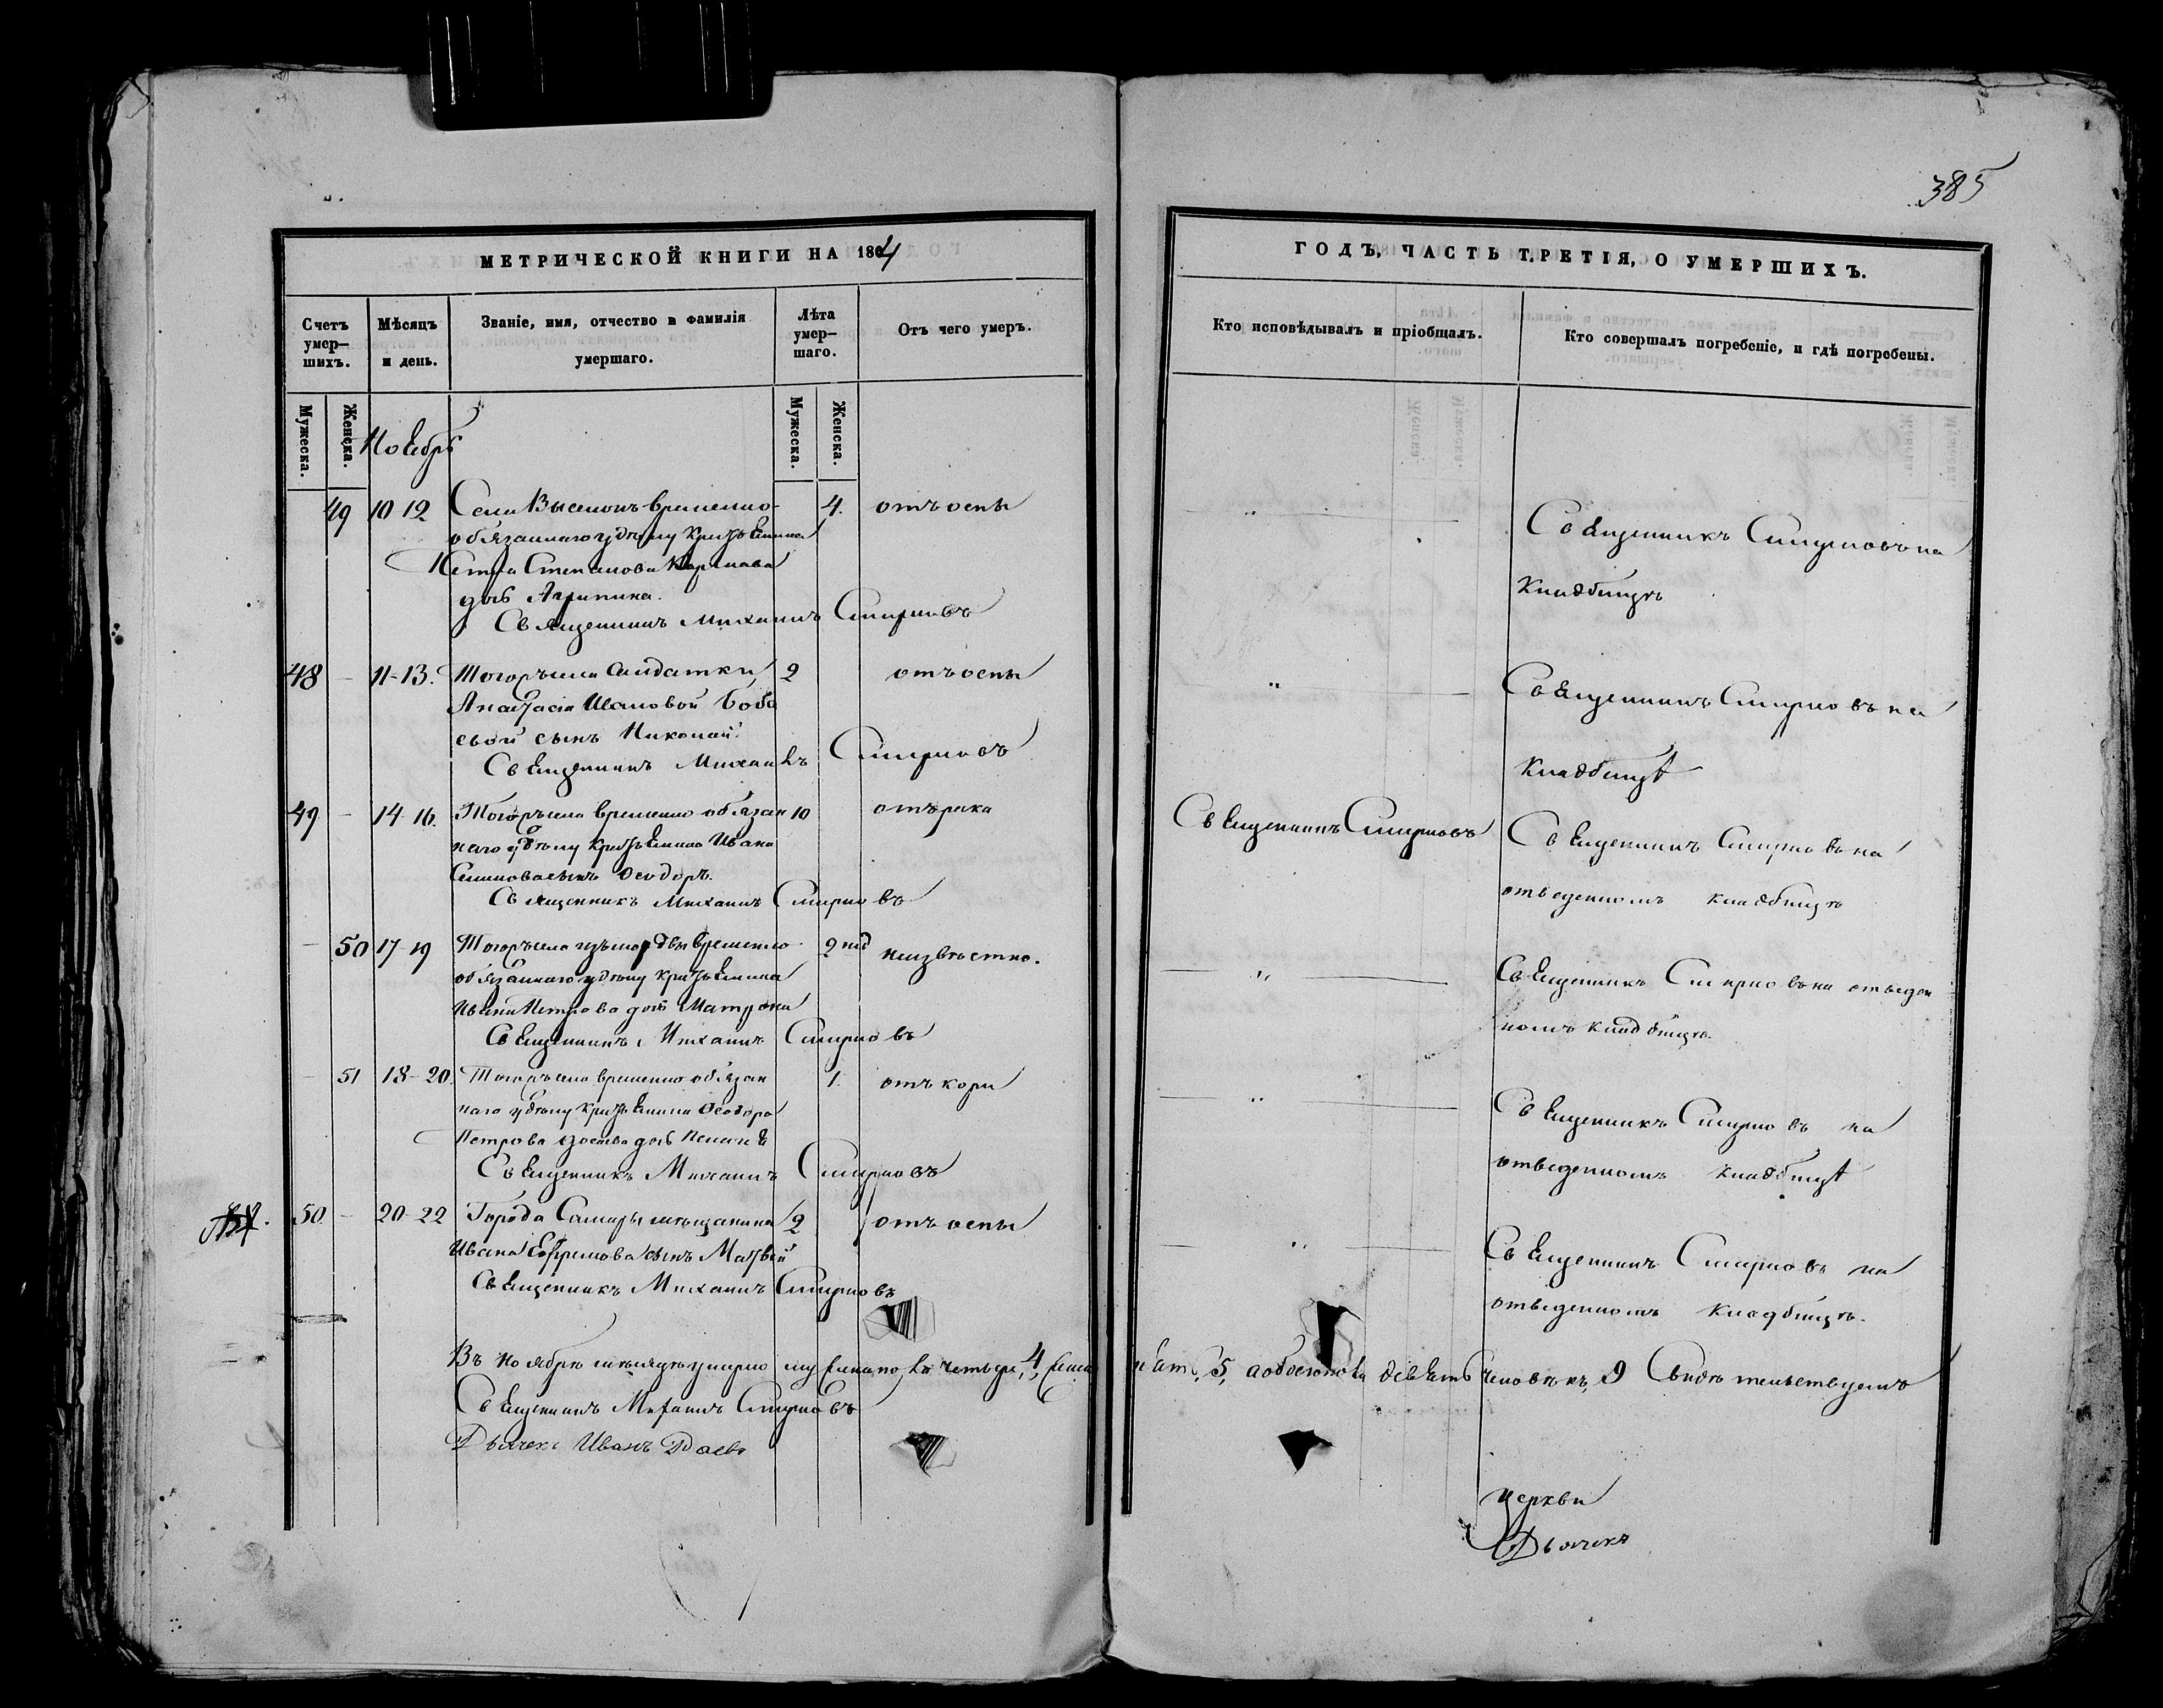 385
МЕТРИЧЕСКОЙ КНИГИ НА 1864
ГОДЪ, ЧАСТЬ ТРЕТІЯ, О УМЕРШИХЪ.
Счетъ умер–шихъ.
Мѣсяцъ и день.
Званіе, имя, отчество и фамилія умершаго.
Лѣта умер–шаго.
Отъ чего умеръ.
Кто исповѣдывалъ и пріобщалъ.
Кто совершалъ погребеніе, и гдѣ погребены.
Мужеска.
Женска.
Мужеска.
Женска.
Ноябрь
49 10 12 Села временно- 4. отъ оспы
обязаннаго удѣлу крестьянина
Петра Степанова
дочь Агрипина.
Священникъ Михаилъ Смирновъ
Священникъ Смирновъ на
кладбищѣ
48 – 11–13. Тогожъ села солдатки 2 отъ оспы
Анастасіи Ивановой
сынъ Николай.
Священникъ Михаилъ Смирновъ
Священникъ Смирновъ на
кладбищѣ
49 – 14–16. Тогожъ села временно обязан 10 отъ рака
наго удѣлу крестьянина Ивана
сынъ Ѳеодоръ.
Священникъ Михаилъ Смирновъ
Священникъ Смирновъ
Священникъ Смирновъ на
отведенномъ кладбищѣ
– 50 17–19 Тогожъ села изъ мордвы временно 2 нед неизвѣстно.
обязаннаго удѣлу крестьянина
Ивана Петрова дочь Матрона
Священникъ Михаилъ Смирновъ
Священникъ Смирновъ на отведен
номъ кладбищѣ.
– 51 18–20. Тогожъ села временно обязан 1. отъ кори
наго удѣлу крестьянина Ѳеодора
Петрова дочь
Священникъ Михаилъ Смирновъ
Священникъ Смирновъ на
отведенномъ кладбищѣ
50 – 20–22 Города Самары мѣщанина 2 отъ оспы
Ивана Ефремова сынъ Матвей
Священникъ Михаилъ Смирновъ
Священникъ Смирновъ на
отведенномъ кладбищѣ.
Въ ноябрѣ мѣсяцѣ умерло мужеска пола четыре, 4, женска пять, 5, а обоего пола девять человѣкъ, 9 Свидѣтельствуемъ
Священникъ Михаилъ Смирновъ
Дьячекъ Иванъ
церкви
Дьячекъ